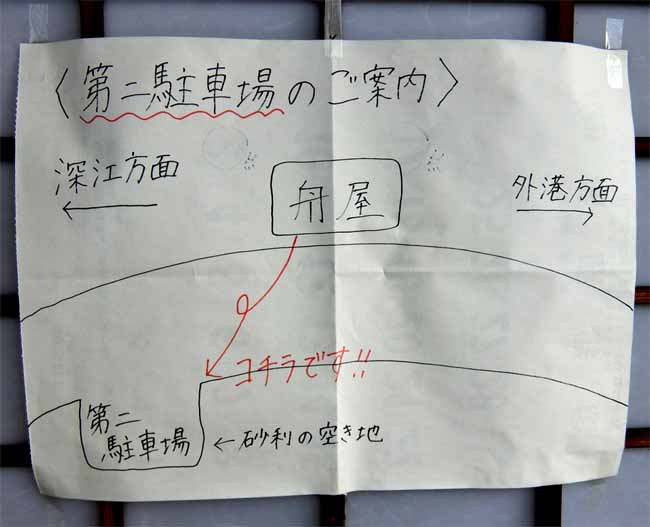 〈第二駐車場のご案内〉
深江方面
←
舟屋
外港方面
→
コチラです!!
第二
駐車場
←砂利の空き地